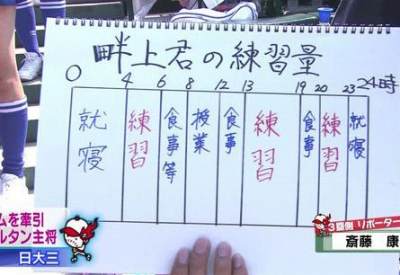 畔上君の練習量
0 4 6 8 12 13 19 20 23 24時
就寝 練習 食事等 授業 食事 練習 食事 練習 就寝
ムを牽引
ルタン主将
日大三
3塁側 リポーター
斎藤 康